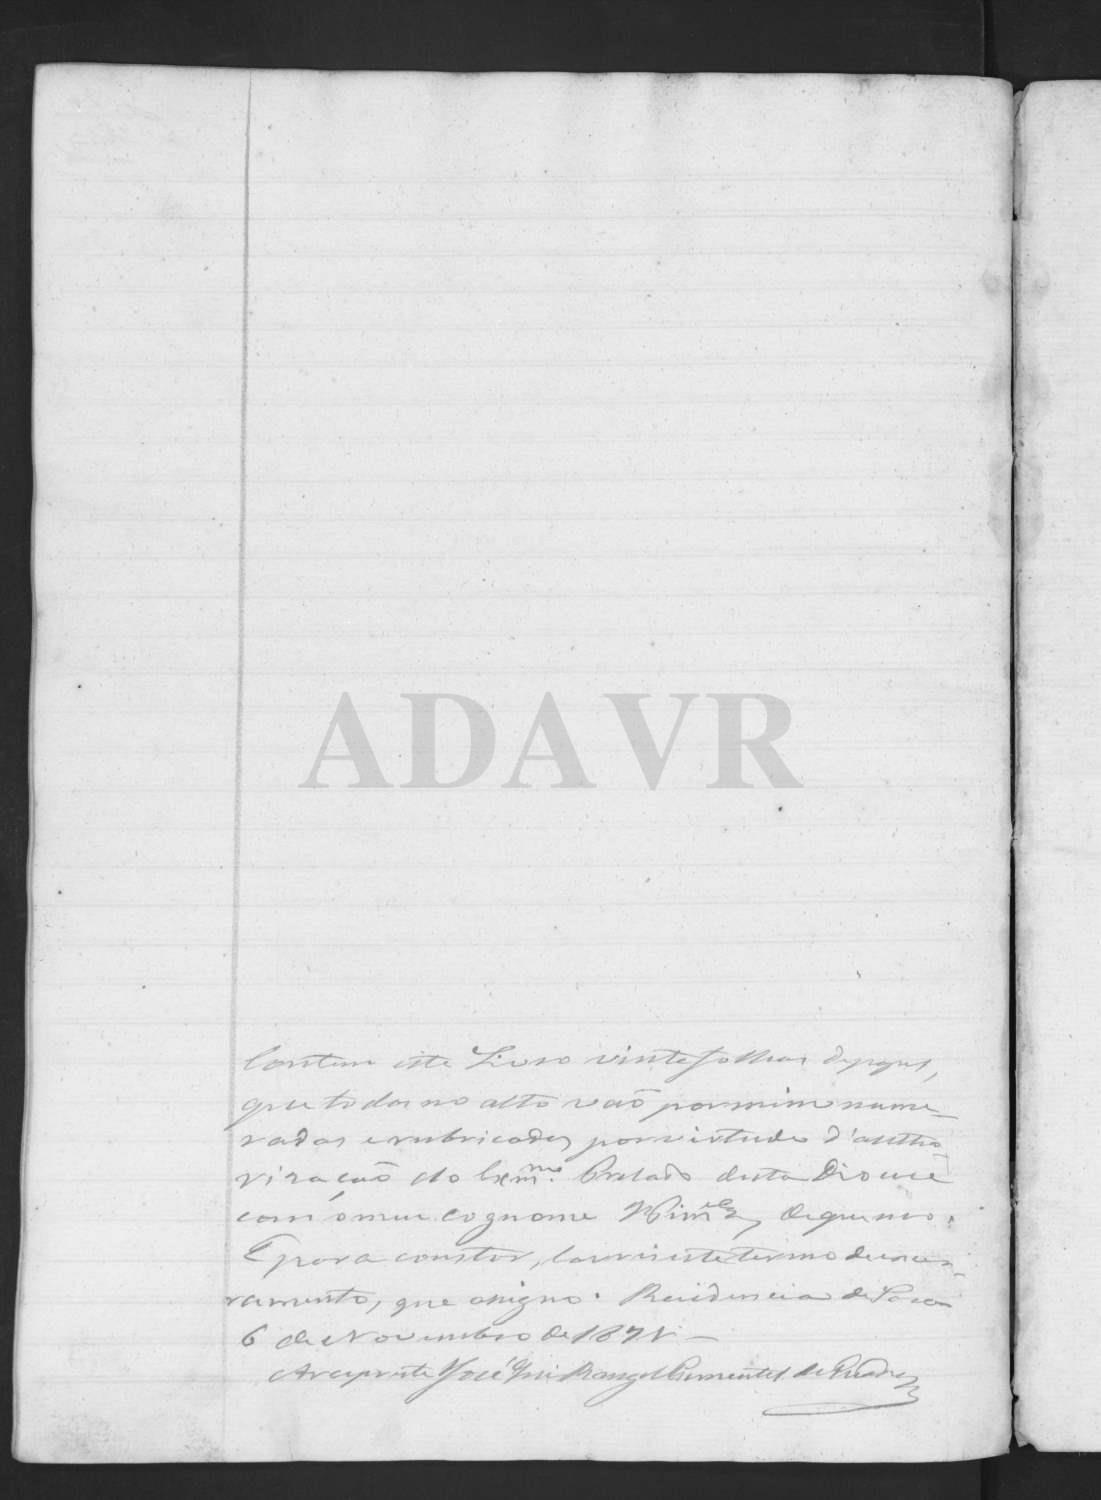 ADAVR
Contem este Livro vinte folhas de papel,
que todas no alto vaõ por mim nume-
radas e rubricadas por virtude d'autho-
risacaõ do Exm.mo Prelado desta Diocese
com o meu cognome de que uso.
E para constar, lavrei este termo de encer-
ramento, que assigno. Residencia de
6 de Novembro de 187
Arcipreste José Rangel Pimentel de Quadros